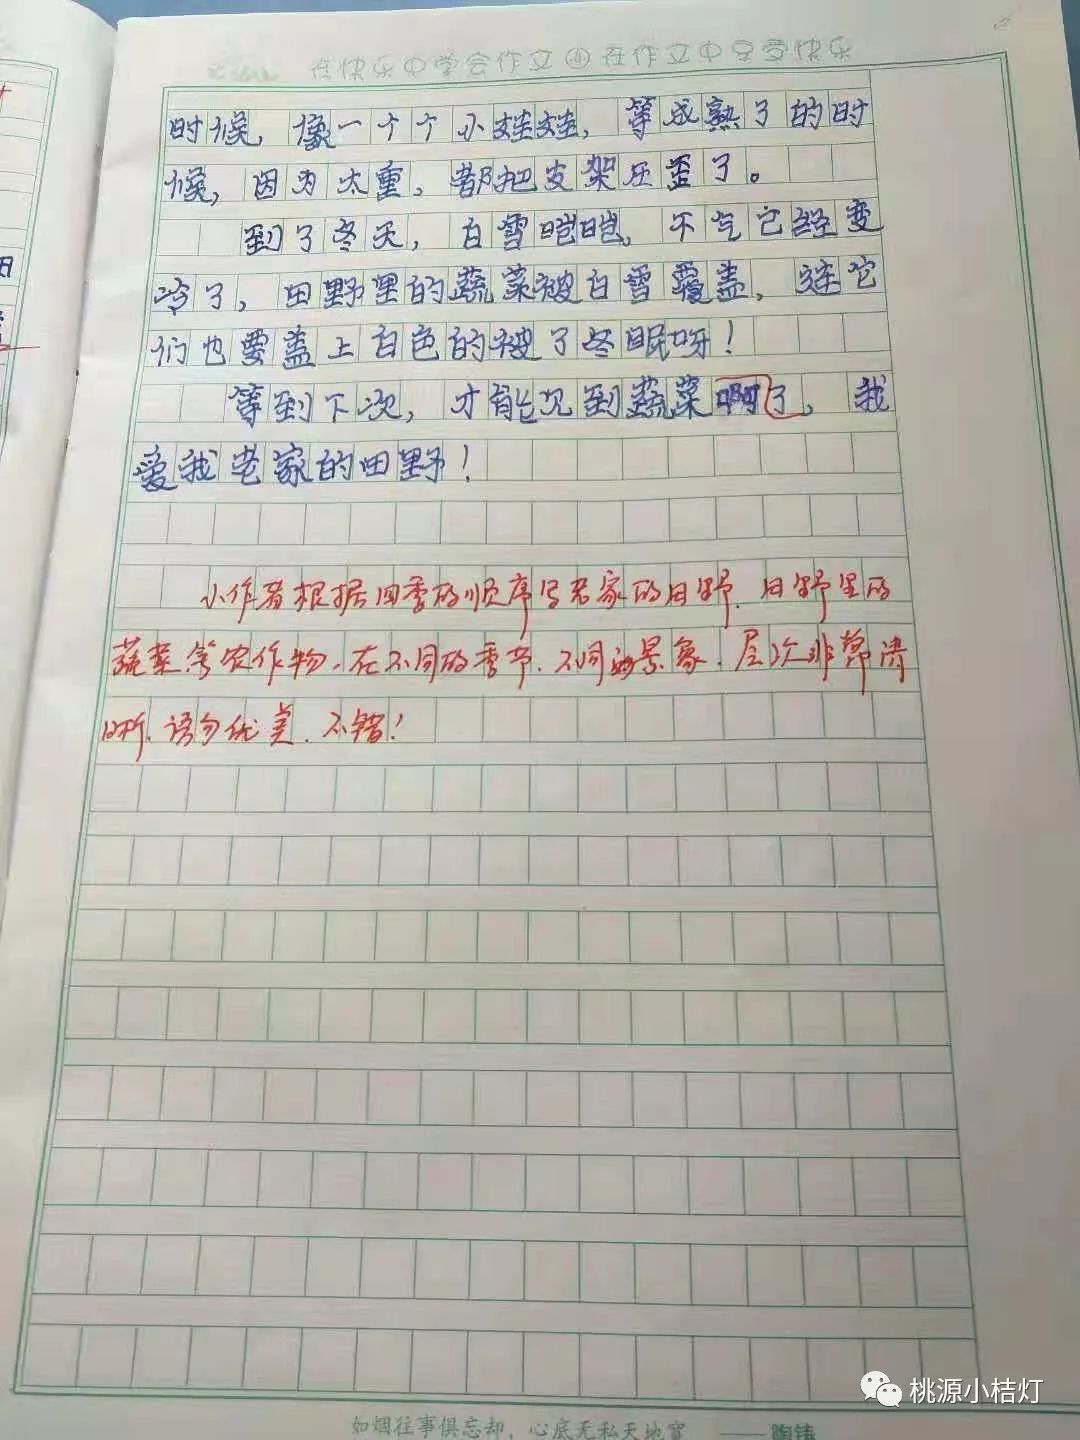 在快乐中学会作文 在作文中享受快乐
时候，像一个个小娃娃，等成熟了的时
候，因为太重，都把支架压歪了。
到了冬天，白雪皑皑，天气已经变
冷了，田野里的蔬菜被白雪覆盖，连它
们也要盖上白色的被了冬眠呀！
等到下次，才能见到蔬菜啊了，我
爱我老家的田野！
小作者根据四季的顺序写老家的田野.田野里的
蔬菜等农作物.在不同的季节.不同的景象.层次非常清
晰.语句优美.不错！
如烟往事俱忘却，心底无私天地宽
——陶铸
桃源小桔灯